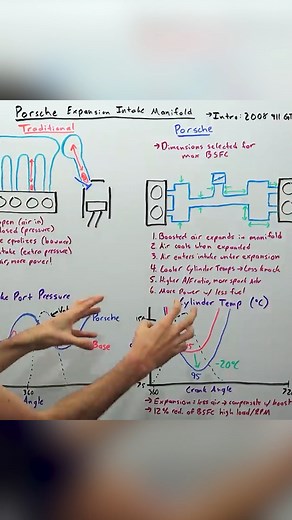 Porsche Expansion Intake Manifold → Intro: 2008 911 GT
Traditional
open (air in)
closed (pressure)
(bounces)
intake (extra pressure)
air, more power!
Port Pressure
Porsche
Base
360
Angle
Porsche
→ Dimensions selected for
max BSFC
1. Boosted air expands in manifold
2. Air cools when expanded
3. Air enters intake under expansion
4. Cooler Cylinder Temps → Less knock
5. Higher A/F ratio, more spark adv
6. More Power w/ less fuel
Cylinder Temp (°C)
-20°C
95
360
Crank Angle
→ Expansion: less air → compensate w/ boost
→ 12% red. of BSFC high load/RPM